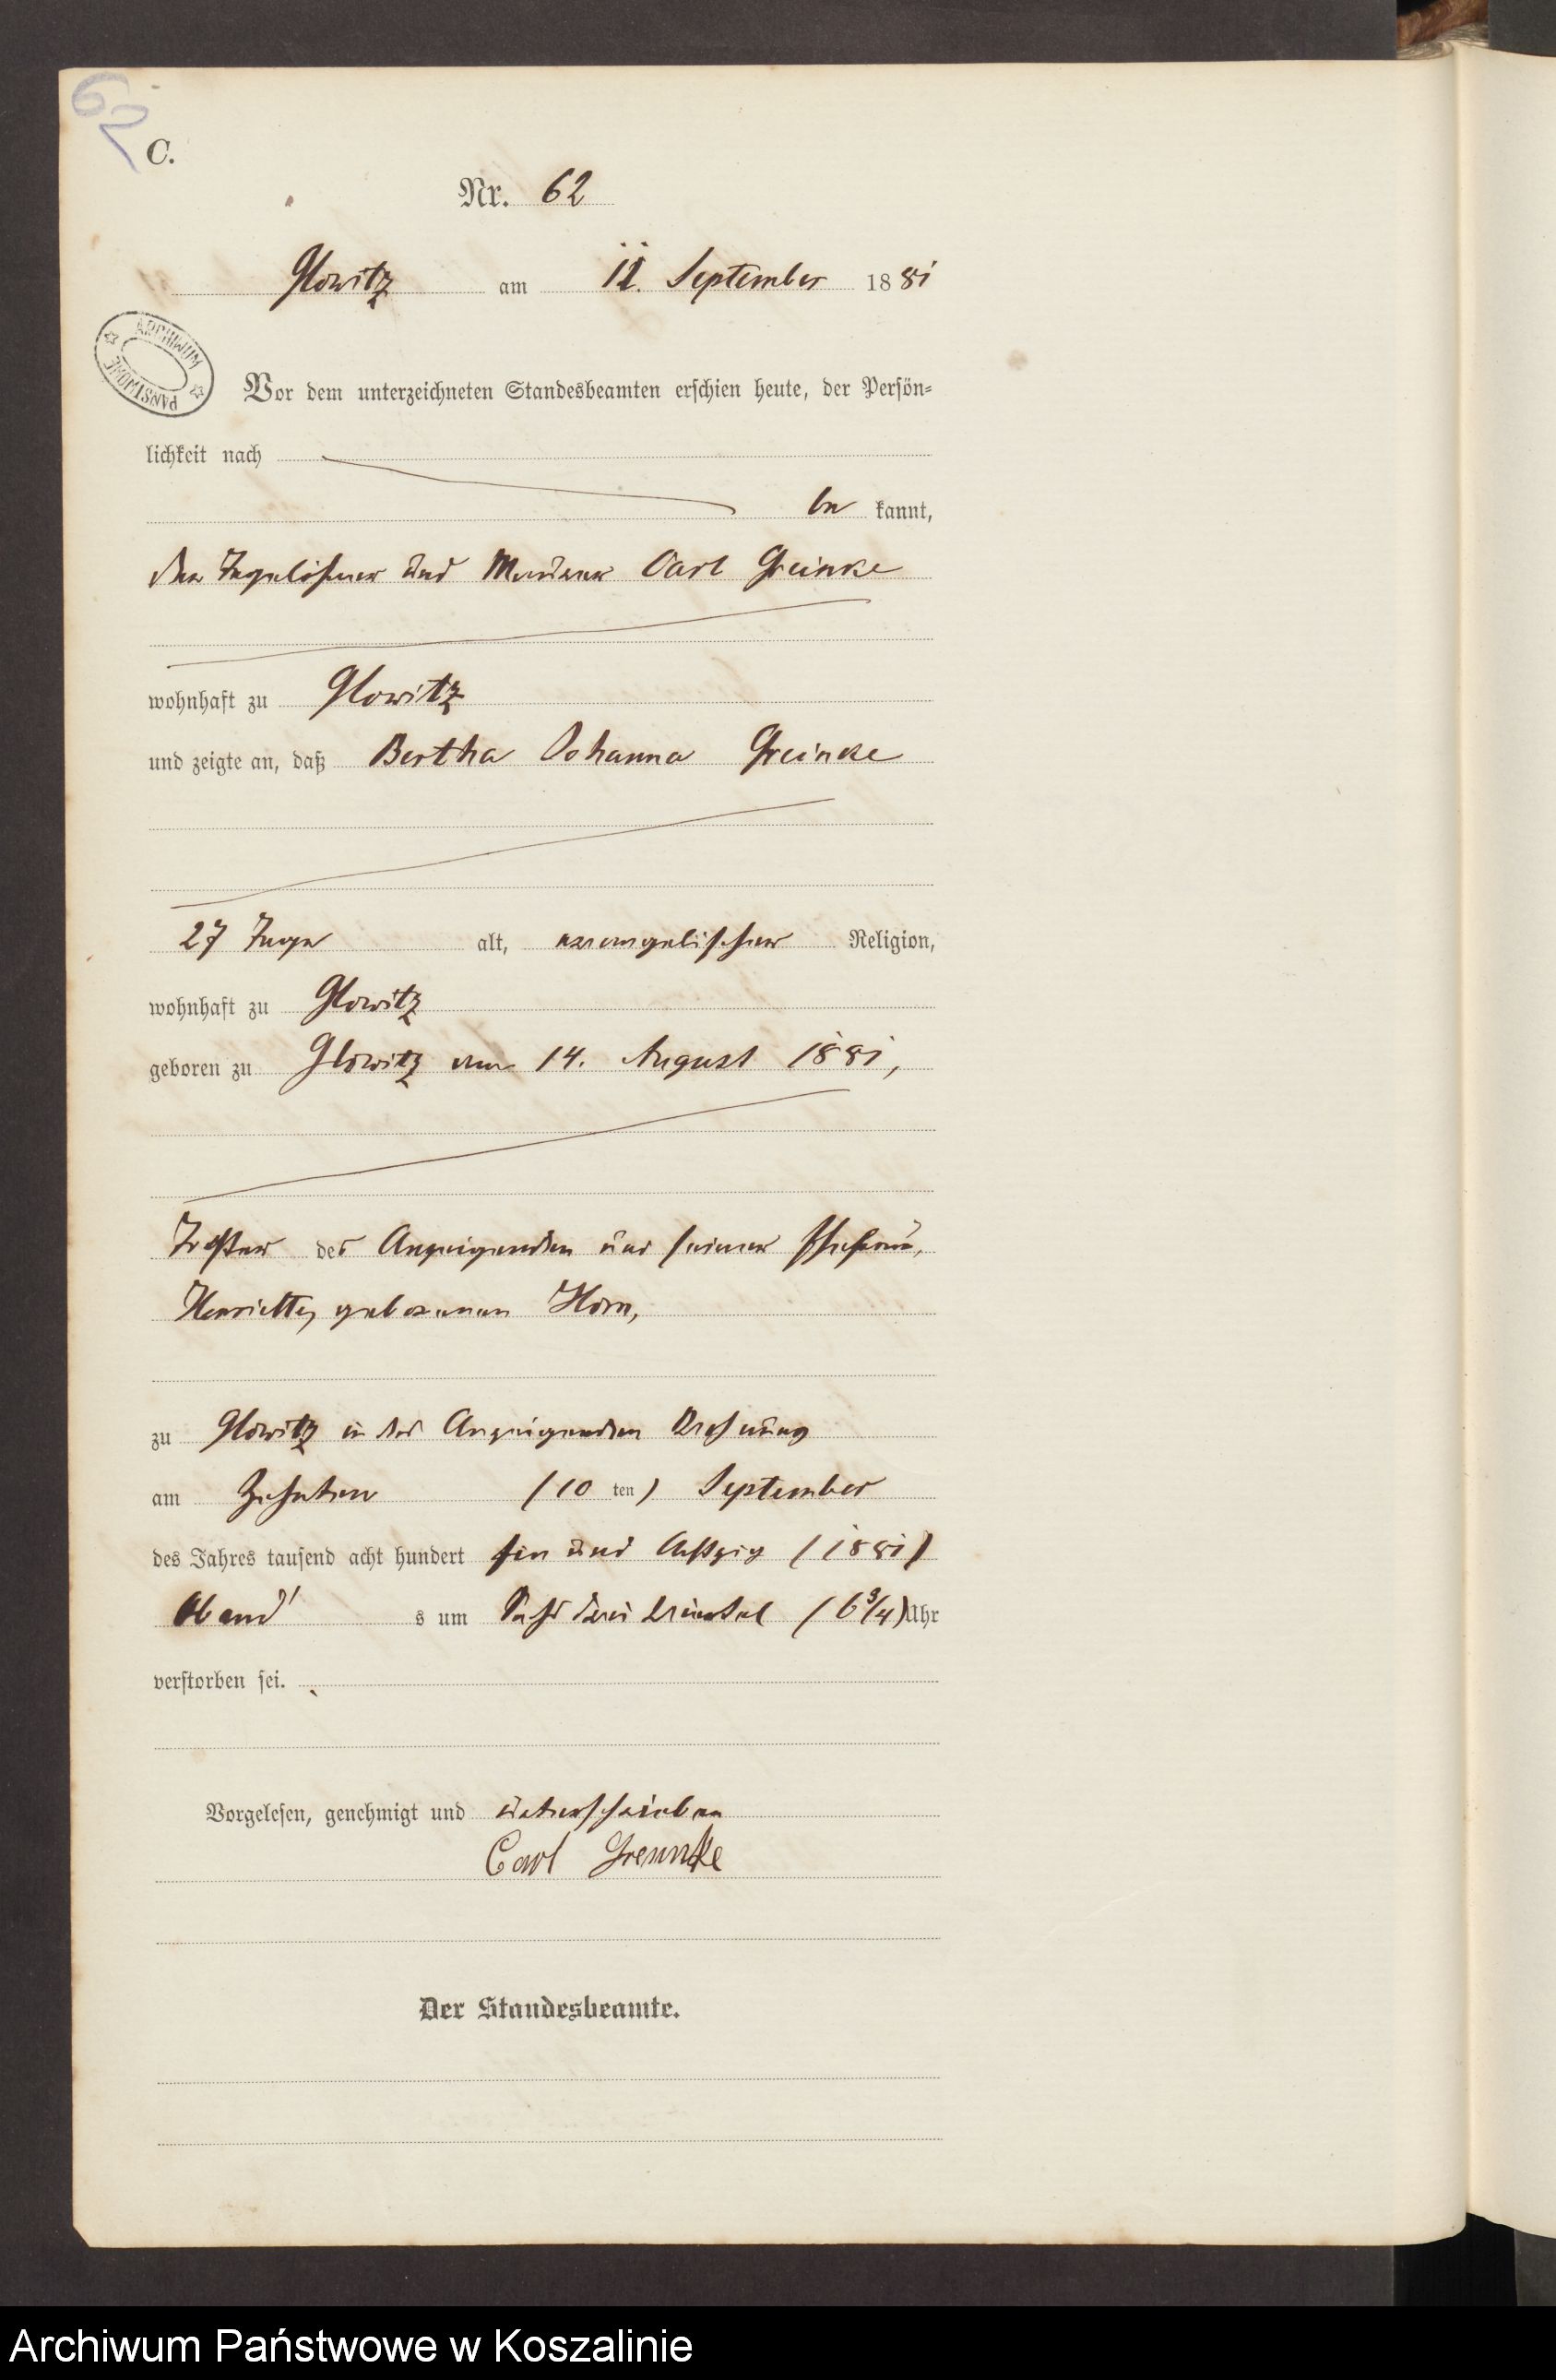 62
C.
Nr. 62
Glowitz am 11. September 1881
ARCHIWUM PAŃSTWOWE
Vor dem unterzeichneten Standesbeamten erschien heute, der Persön-
lichkeit nach
be kannt,
der Tagelöhner und Maurer Carl Greinke
wohnhaft zu Glowitz
und zeigte an, daß Bertha Johanna Greinke
27 Tage alt, evangelischer Religion,
wohnhaft zu Glowitz
geboren zu Glowitz am 14. August 1881,
Tochter des Anzeigenden und seiner Ehefrau,
Henriette, geborenen Horn,
zu Glowitz in des Anzeigenden Wohnung
am Zehnten (10 ten) September
des Jahres tausend acht hundert ein und Achtzig (1881)
Abend s um Sechs drei Viertel (6 3/4) Uhr
verstorben sei.
Vorgelesen, genehmigt und unterschrieben
Carl
Der Standesbeamte.
Archiwum Państwowe w Koszalinie